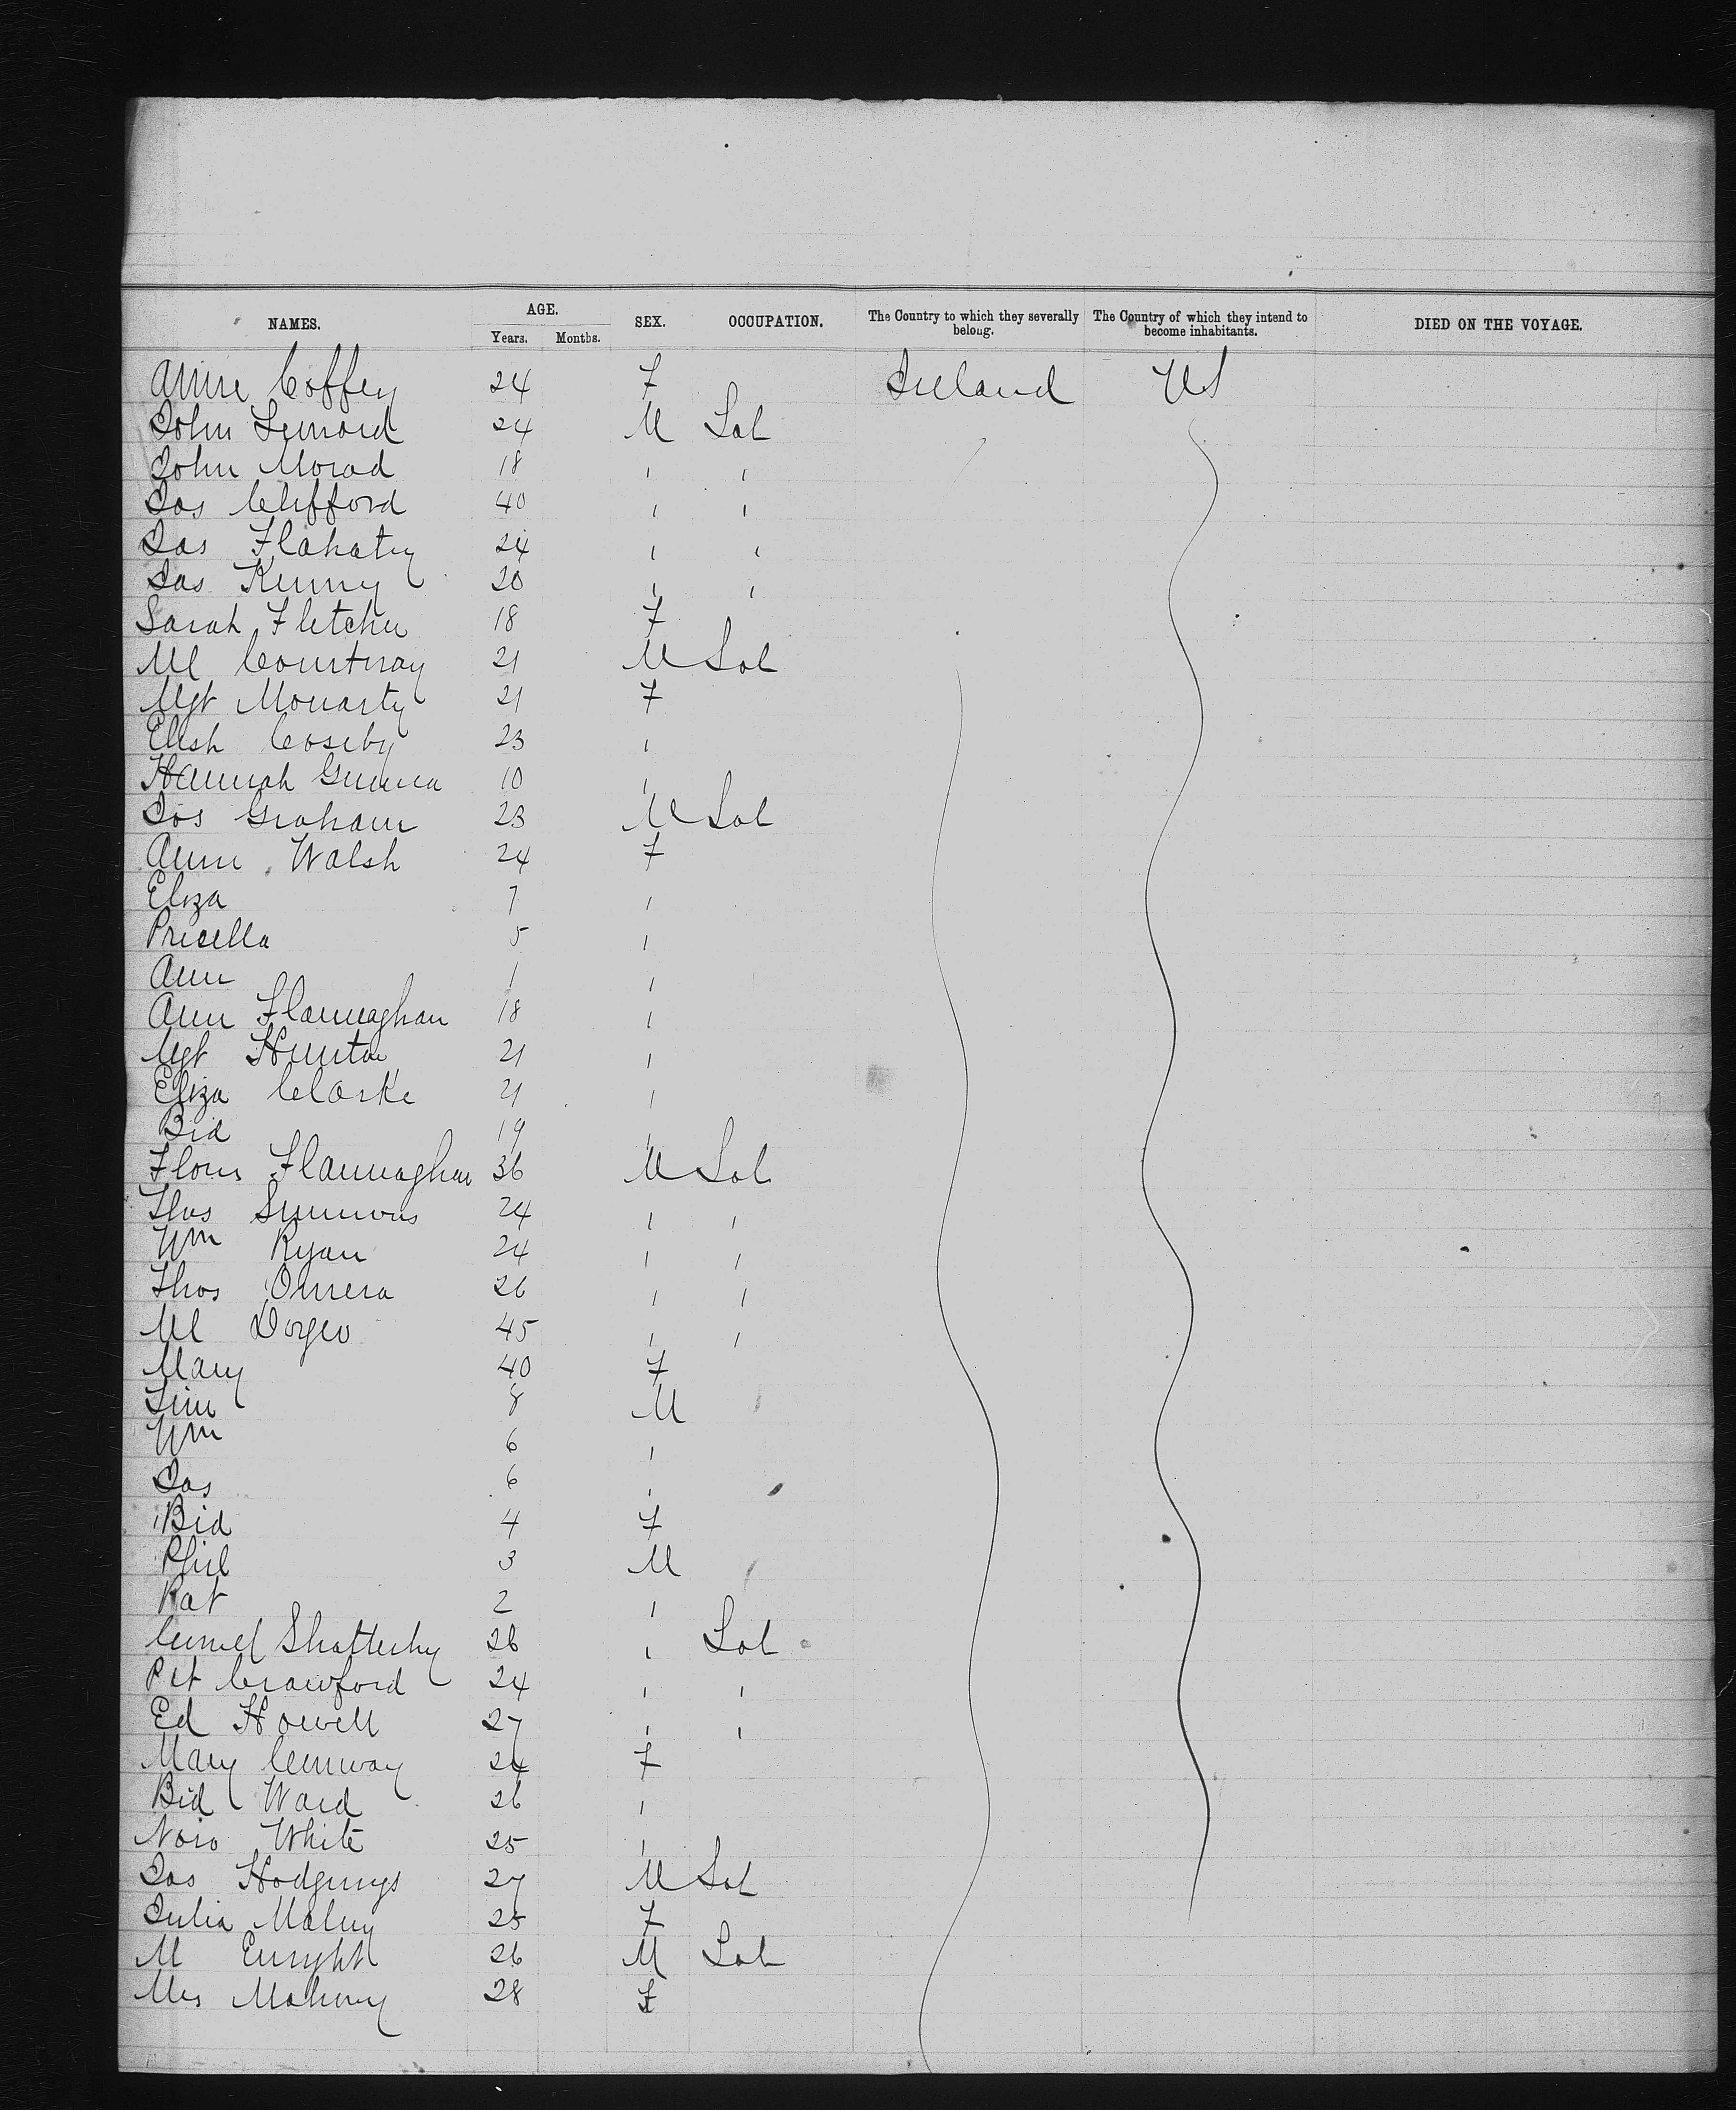 NAMES. AGE. Years. Months. SEX. OCCUPATION. The Country to which they severally belong. The Country of which they intend to become inhabitants. DIED ON THE VOYAGE.
Annie Coffey 24 F Ireland US
John Lennord 24 M Lab
John Morad 18 ' '
Jas Clifford 40 ' '
Jas Flahaty 24 ' '
Jas Kenny 20 ' '
Sarah Fletcher 18 F
Ml Courtnay 21 M Lab
Mgt Moriarty 21 F
Elish Coseby 23 '
Hannah 10 '
Jos Graham 23 M Lab
Ann Walsh 24 F
Eliza 7 '
Pricella 5 '
Ann 1 '
Ann Flannaghan 18 '
Mgt Hunter 21 '
Eliza Clarke 21 '
Bid 19 '
Flannaghan 36 M Lab
Thos Simmons 24 ' '
Wm Ryan 24 ' '
Thos Omera 26 ' '
Ml 45 ' '
Mary 40 F
Tim 8 M
Wm 6 '
Jas 6 '
Bid 4 F
Phil 3 M
Pat 2 '
Shatterhy 26 ' Lab
Pat Crawford 24 ' '
Ed Howell 27 ' '
Mary Conway 24 F
Bid Ward 26 '
White 25 '
Jas 27 M Lab
Julia Maluy 25 F
M Enryht 26 M Lab
Mrs Mahony 28 F